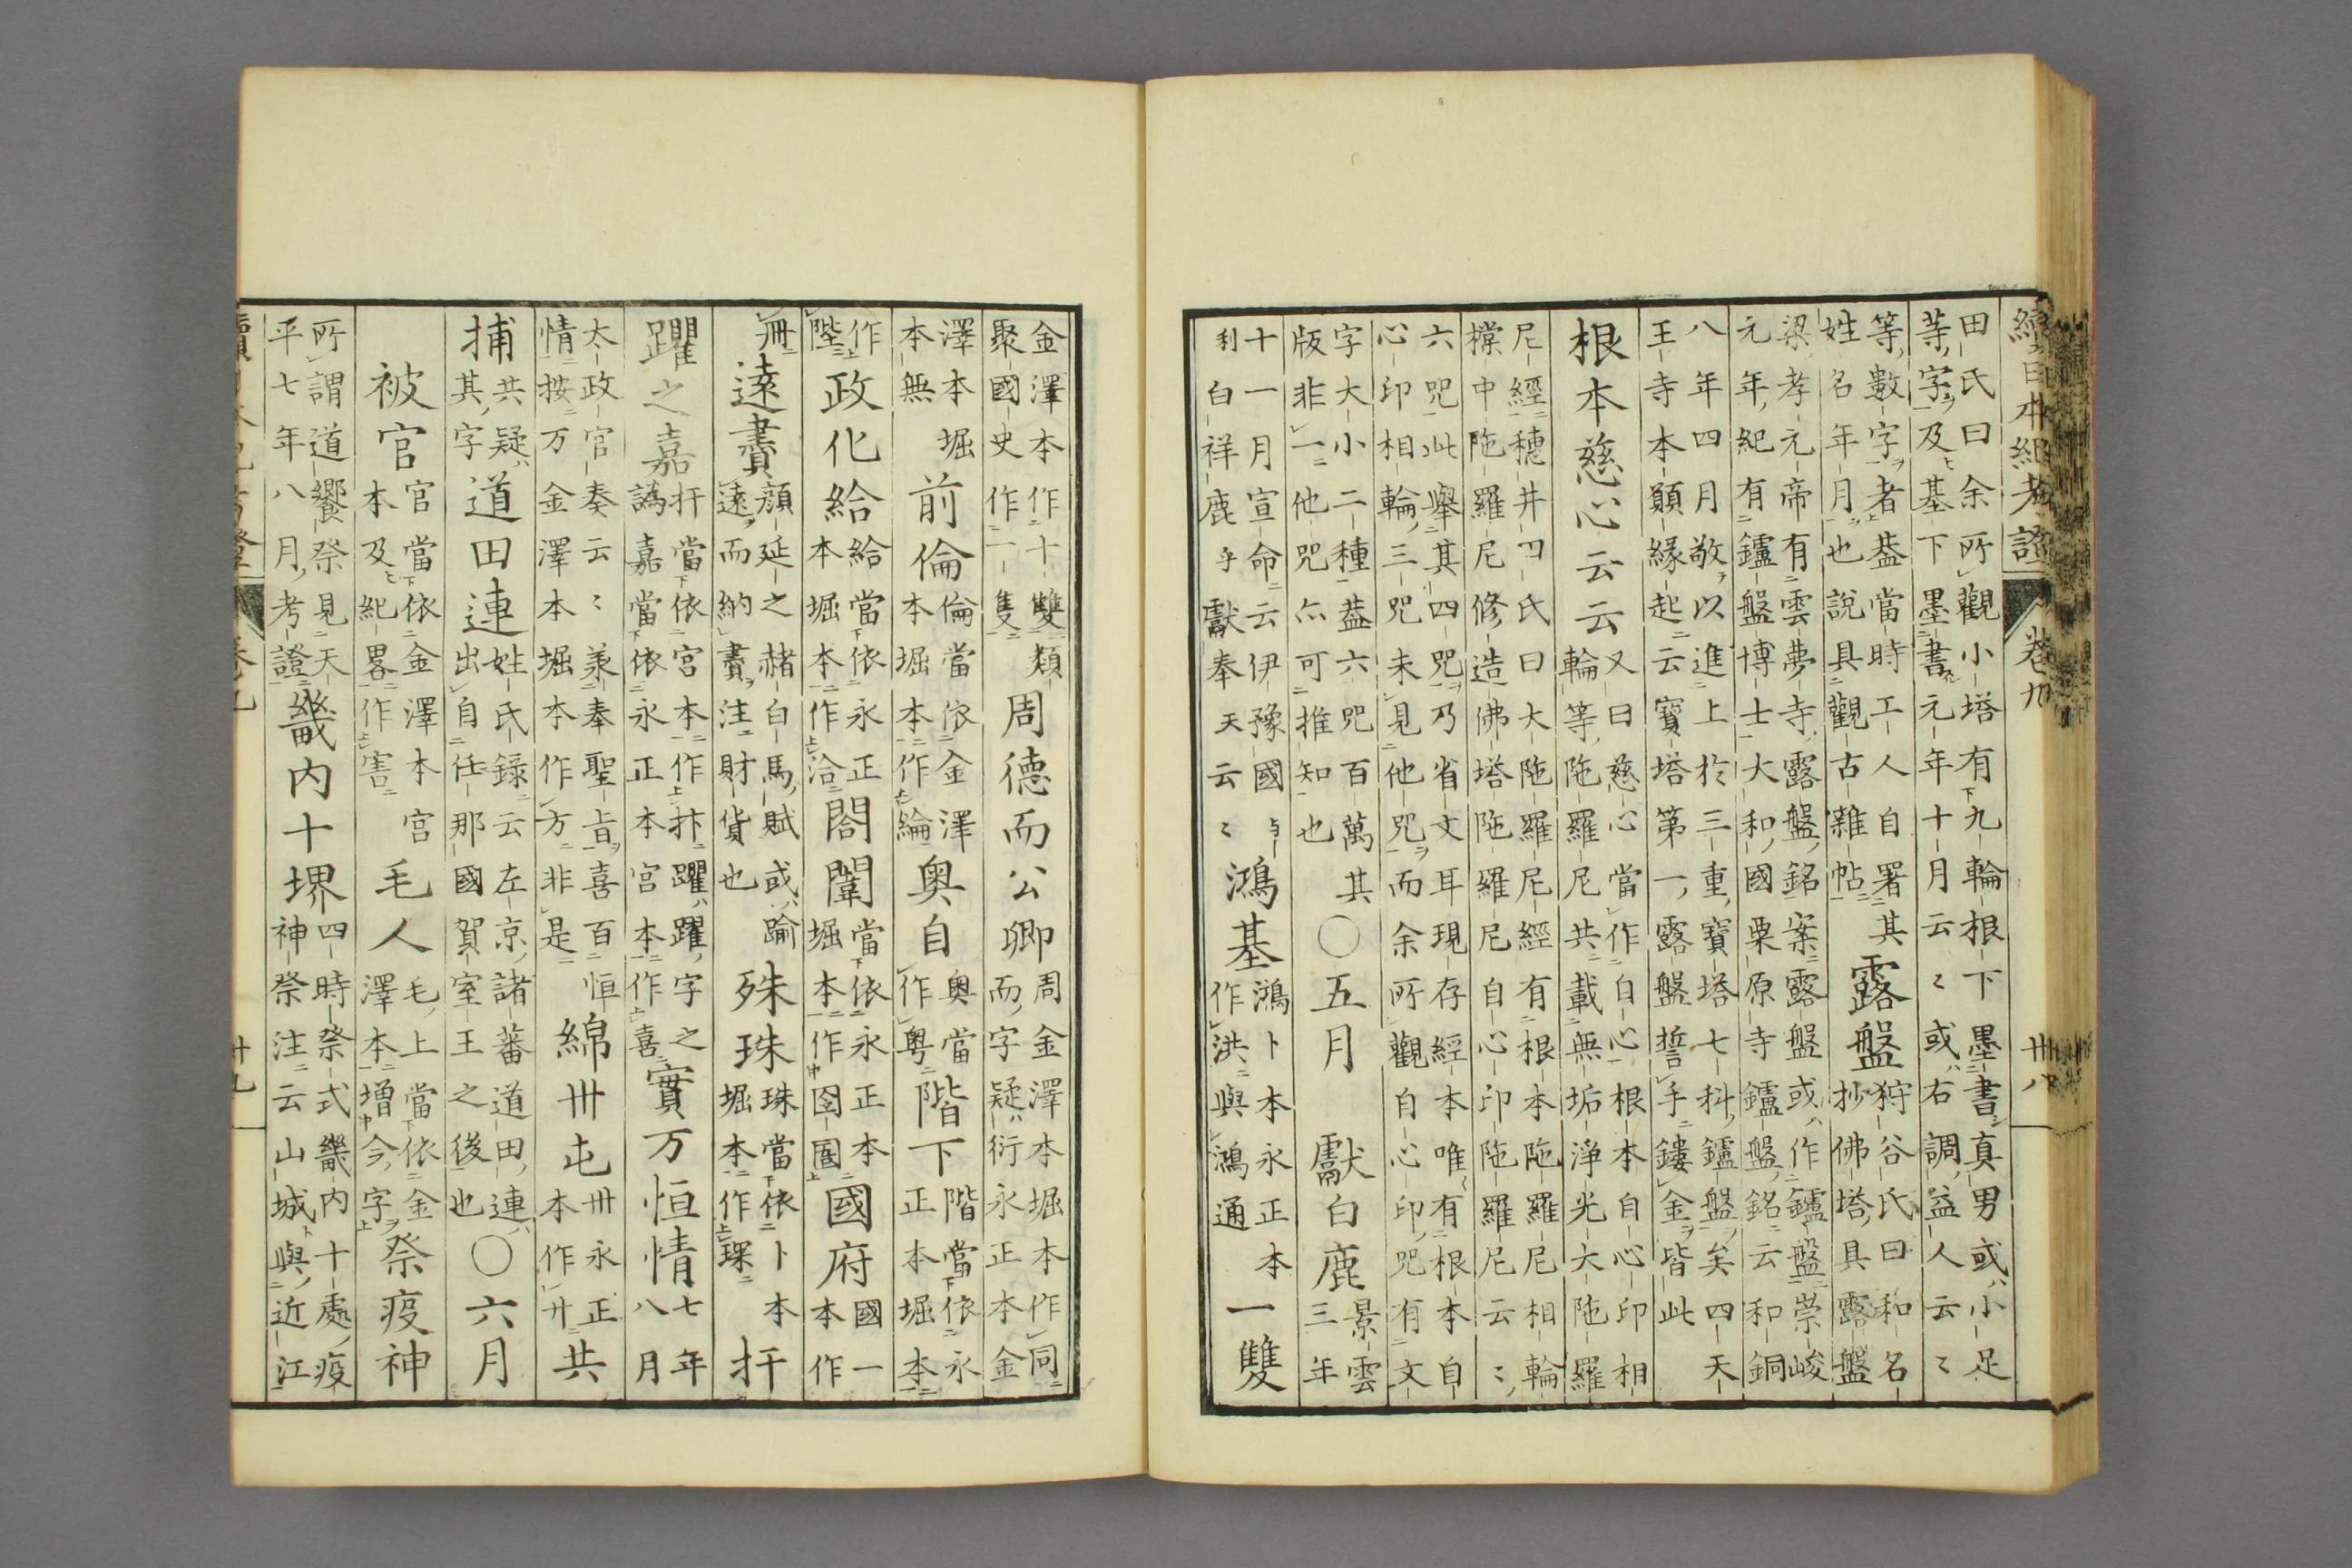 續日本紀考證 卷九 卅八
田氏曰余所觀小塔有九輪根下墨書真男或小足
等字及基下墨書元年十月云〻或右調益人云〻
等數字者蓋當時工人自署其
姓名年月也說具觀古雜帖
露盤
狩谷氏曰和名
抄佛塔具露盤
梁孝元帝有雲夢寺露盤銘案露盤或作鑪盤崇峻
元年紀有鑪盤博士大和國栗原寺鑪盤銘云和銅
八年四月敬以進上於三重寶塔七科鑪盤矣四天
王寺本願緣起云寶塔第一露盤誓手鏤金皆此
根本慈心云云
又曰慈心當作自心根本自心印相
輪等陁羅尼共載無垢淨光大陁羅
尼經穗井田氏曰大陁羅尼經有根本陁羅尼相輪
樘中陁羅尼修造佛塔陁羅尼自心印陁羅尼云〻
六咒此舉其四咒乃省文耳現存經本唯有根本自
心印相輪三咒未見他咒而余所觀自心印咒有文
字大小二種蓋六咒百萬其
版非一他咒亦可推知也
○五月 獻白鹿
景雲三年
十一月宣命云伊豫國与
利白祥鹿乎獻奉天云〻
鴻基
鴻卜本永正本
作洪與鴻通
一雙
金澤本作十雙類
聚國史作一隻
周德而公卿
周金澤本堀本作同
而字疑衍永正本金
澤本堀
本無
前倫
倫當依金澤
本堀本作綸
奧自
奧當
作粵
階下
階當依永
正本堀本
作
陛
政化給
給當依永正
本堀本作洽
閤闈
當依永正本
堀本作囹圄
國府
國一
本作
冊
遠賮
顏延之赭白馬賦或踰
遠而納賮注財貨也
殊珠
珠當依卜本
堀本作琛
抃
躍之嘉
抃當依宮本作抃躍躍字之
譌嘉當依永正本宮本作喜
實万恒情
七年
八月
太政官奏云〻美奉聖旨喜百恒
情按万金澤本堀本作方非是
綿卅屯
卅永正
本作廾
共
捕
共疑
其字
道田連
姓氏錄云左京諸蕃道田連
出自任那國賀室王之後也
○六月
被官
官當依金澤本宮
本及紀畧作害
毛人
毛上當依金
澤本增今字
祭疫神
所謂道饗祭見天
平七年八月考證
畿内十堺
四時祭式畿内十處疫
神祭注云山城與近江
卷九 卅九